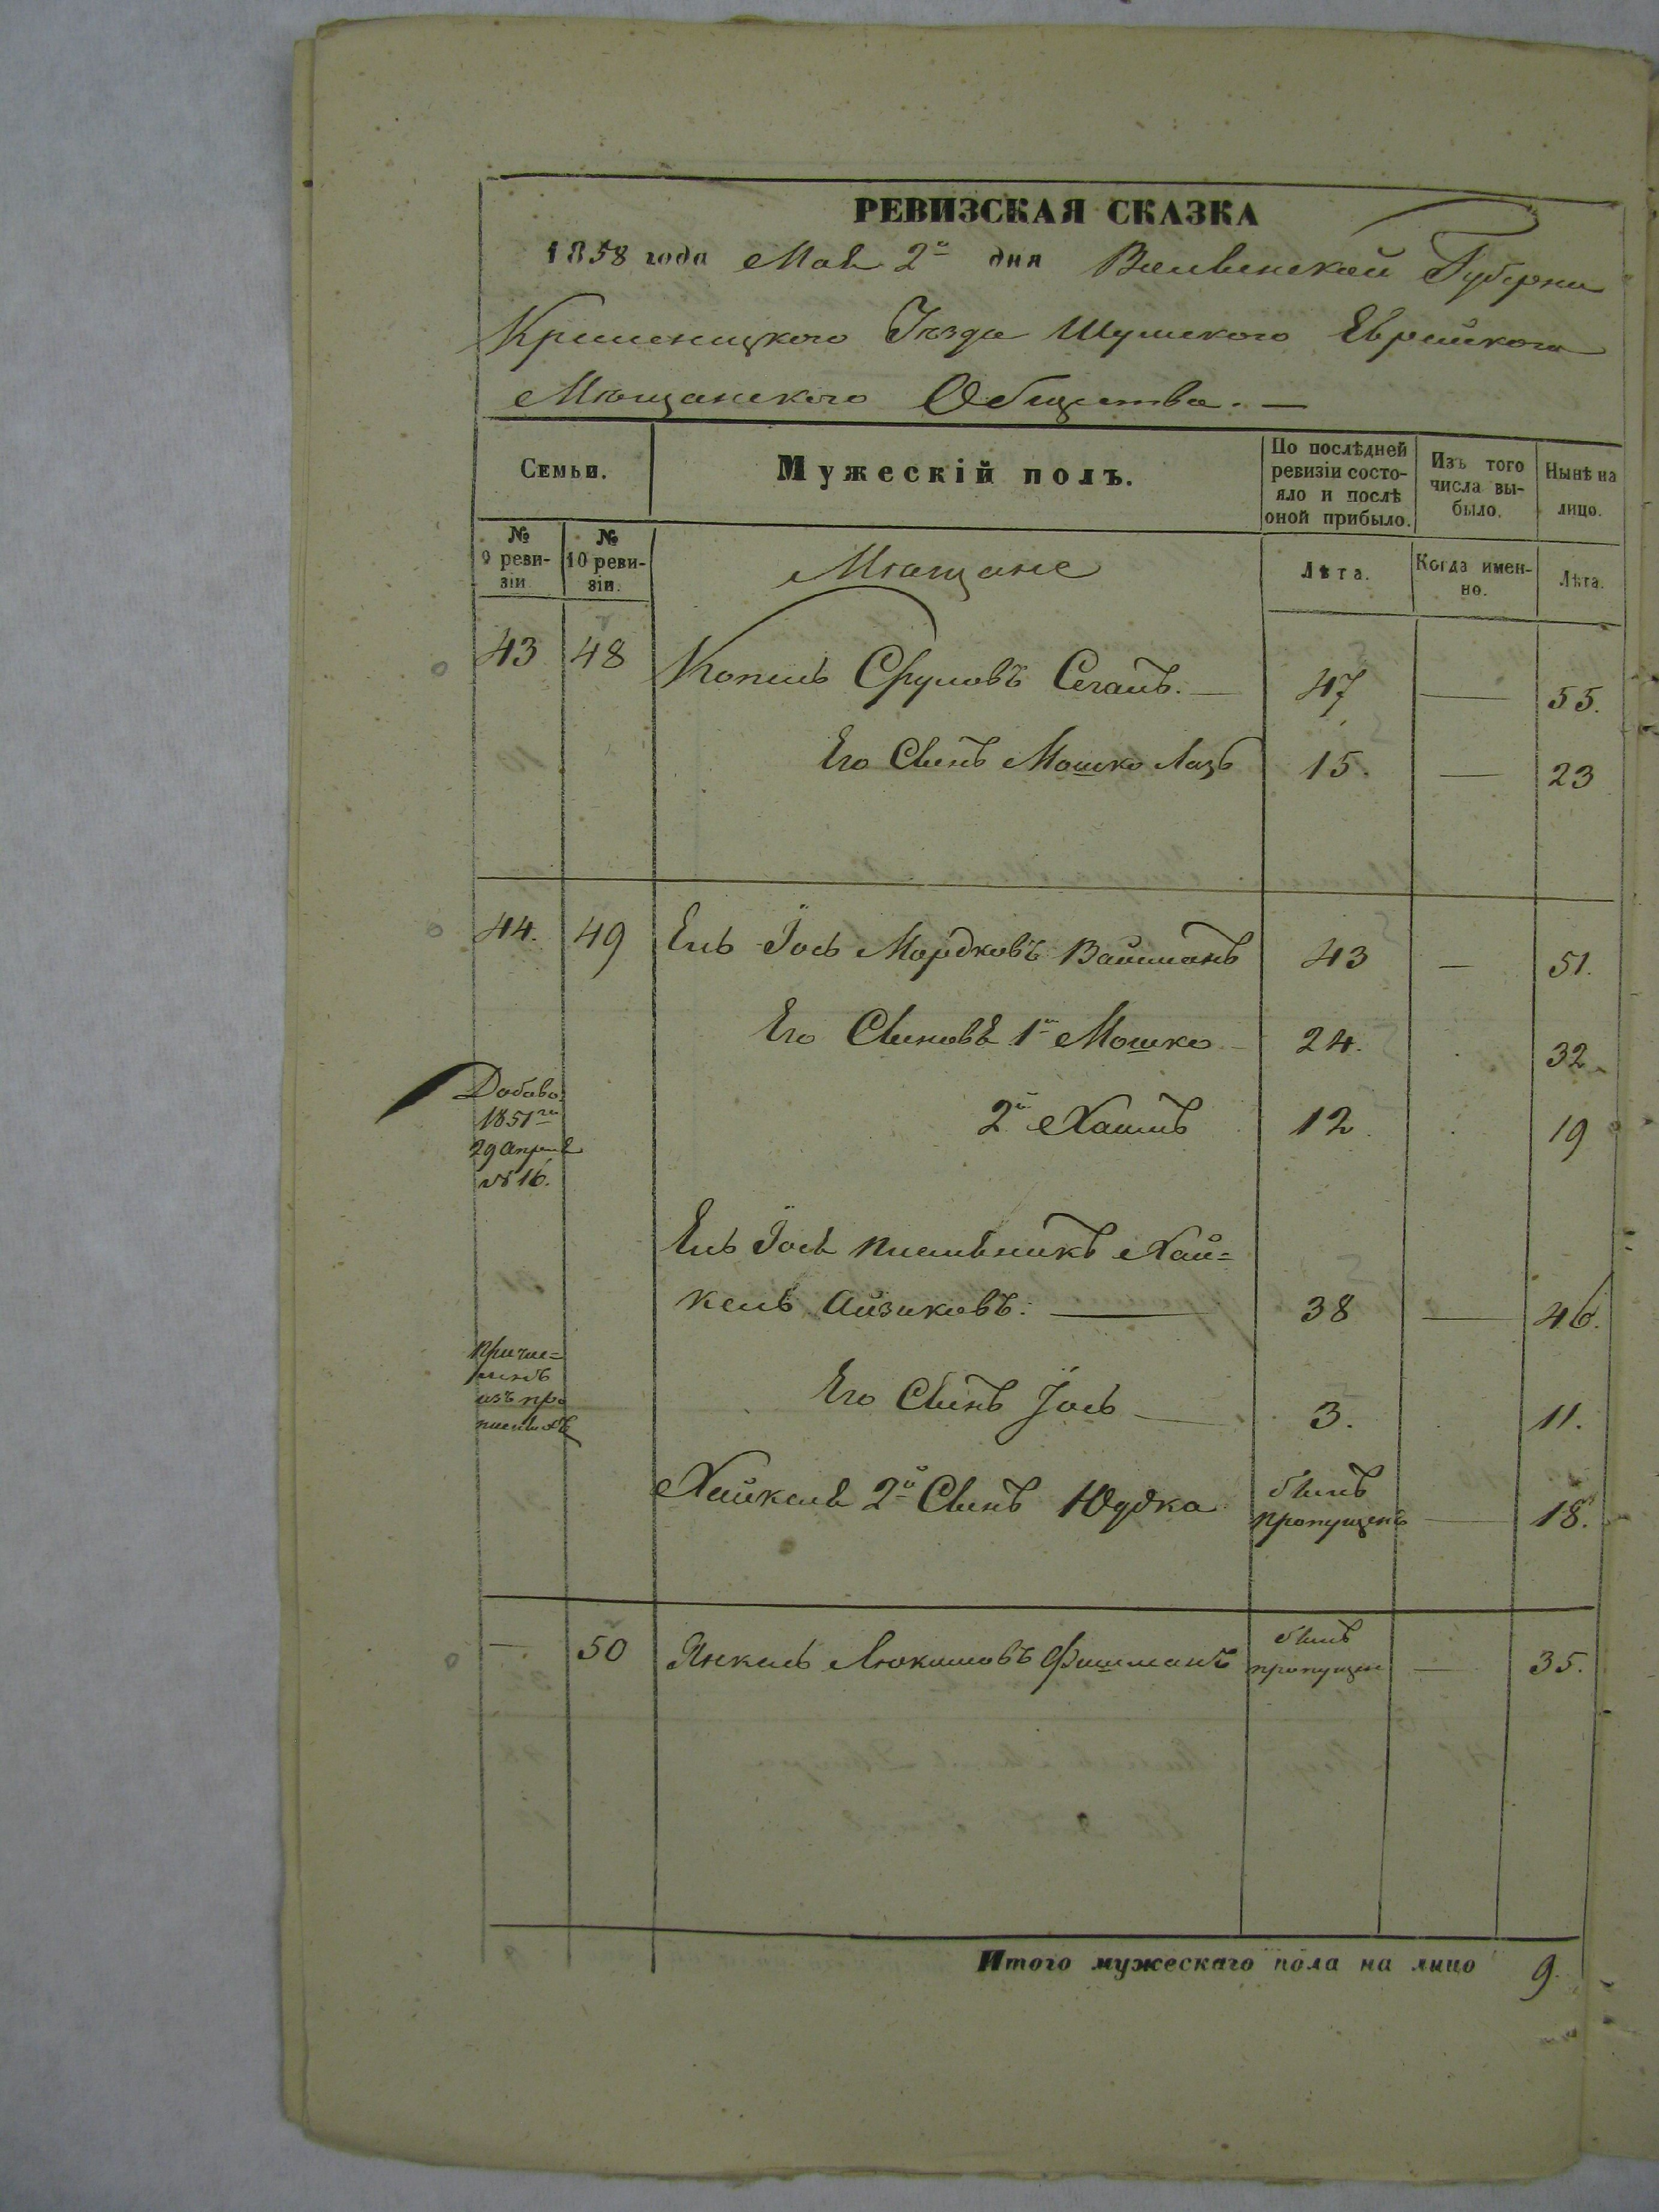 РЕВИЗСКАЯ СКАЗКА
1858 года Мая 2й дня Волынской Губерни
Кременецкого Уѣзда Шумского Еврейского
Мѣщанского Общества. —
Семьи.
Мужескій полъ.
По послѣдней ревизіи состо-
яло и послѣ оной прибыло.
Изъ того числа вы-
было.
Нынѣ на лицо.
№ 9 реви-
зіи.
№ 10 реви-
зіи.
Мѣщане
Лѣта.
Когда имен-
но.
Лѣта.
43 48 Копель Сруловъ Сегалъ. — 47 — 55.
Его Сынъ Мошко Лазъ 15. — 23
44. 49 Ель Іось Мордковъ Вайцманъ 43 — 51.
Его Сыновѣ 1й Мошко 24. 32
Добавоч.
1851го
29 Апреля
№ 16.
2й Хаимъ 12 19
Ель Іося племѣникъ Хай=
кель Айзиковъ. — 38 — 46.
Причис=
ленъ
изъ про
писныхъ
Его Сынъ Іось — 3. 11.
Хайкеля 2й Сынъ Юдка былъ пропущенъ — 18.
— 50 Янкель Фишманъ былъ пропущен — 35.
Итого мужескаго пола на лицо 9.